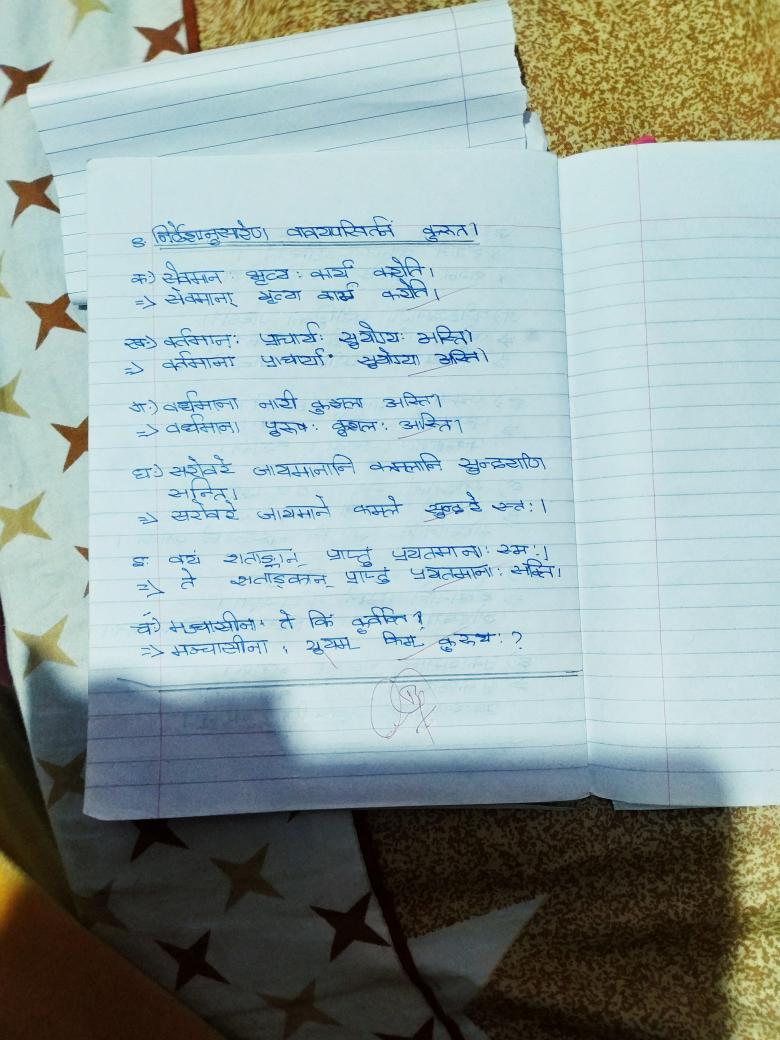 8. निर्देशानुसारेण वाक्यपरिवर्तनं कुरुत।
क:) सेवमान: भृत्य: कार्यं करोति।
=> सेवमाना भृत्या कार्यं करोति।
ख:) वर्तमान: प्राचार्य: सुयोग्य: अस्ति।
=> वर्तमाना प्राचार्या सुयोग्या अस्ति।
ग:) वर्धमाना नारी कुशला अस्ति।
=> वर्धमाना पुरुष: कुशल: अस्ति।
घ:) सरोवरे जायमानानि कमलानि सुन्दराणि
सन्ति।
=> सरोवरे जायमाने कमले सुन्दरे स्त:।
ङ. वयं शताङ्कान् प्राप्तुं प्रयतमाना: स्म:।
=> ते शताङ्कान् प्राप्तुं प्रयतमाना: सन्ति।
च:) मञ्चासीना: ते किं कुर्वन्ति?
=> मञ्चासीना: यूयम् किम् कुरुथ: ?